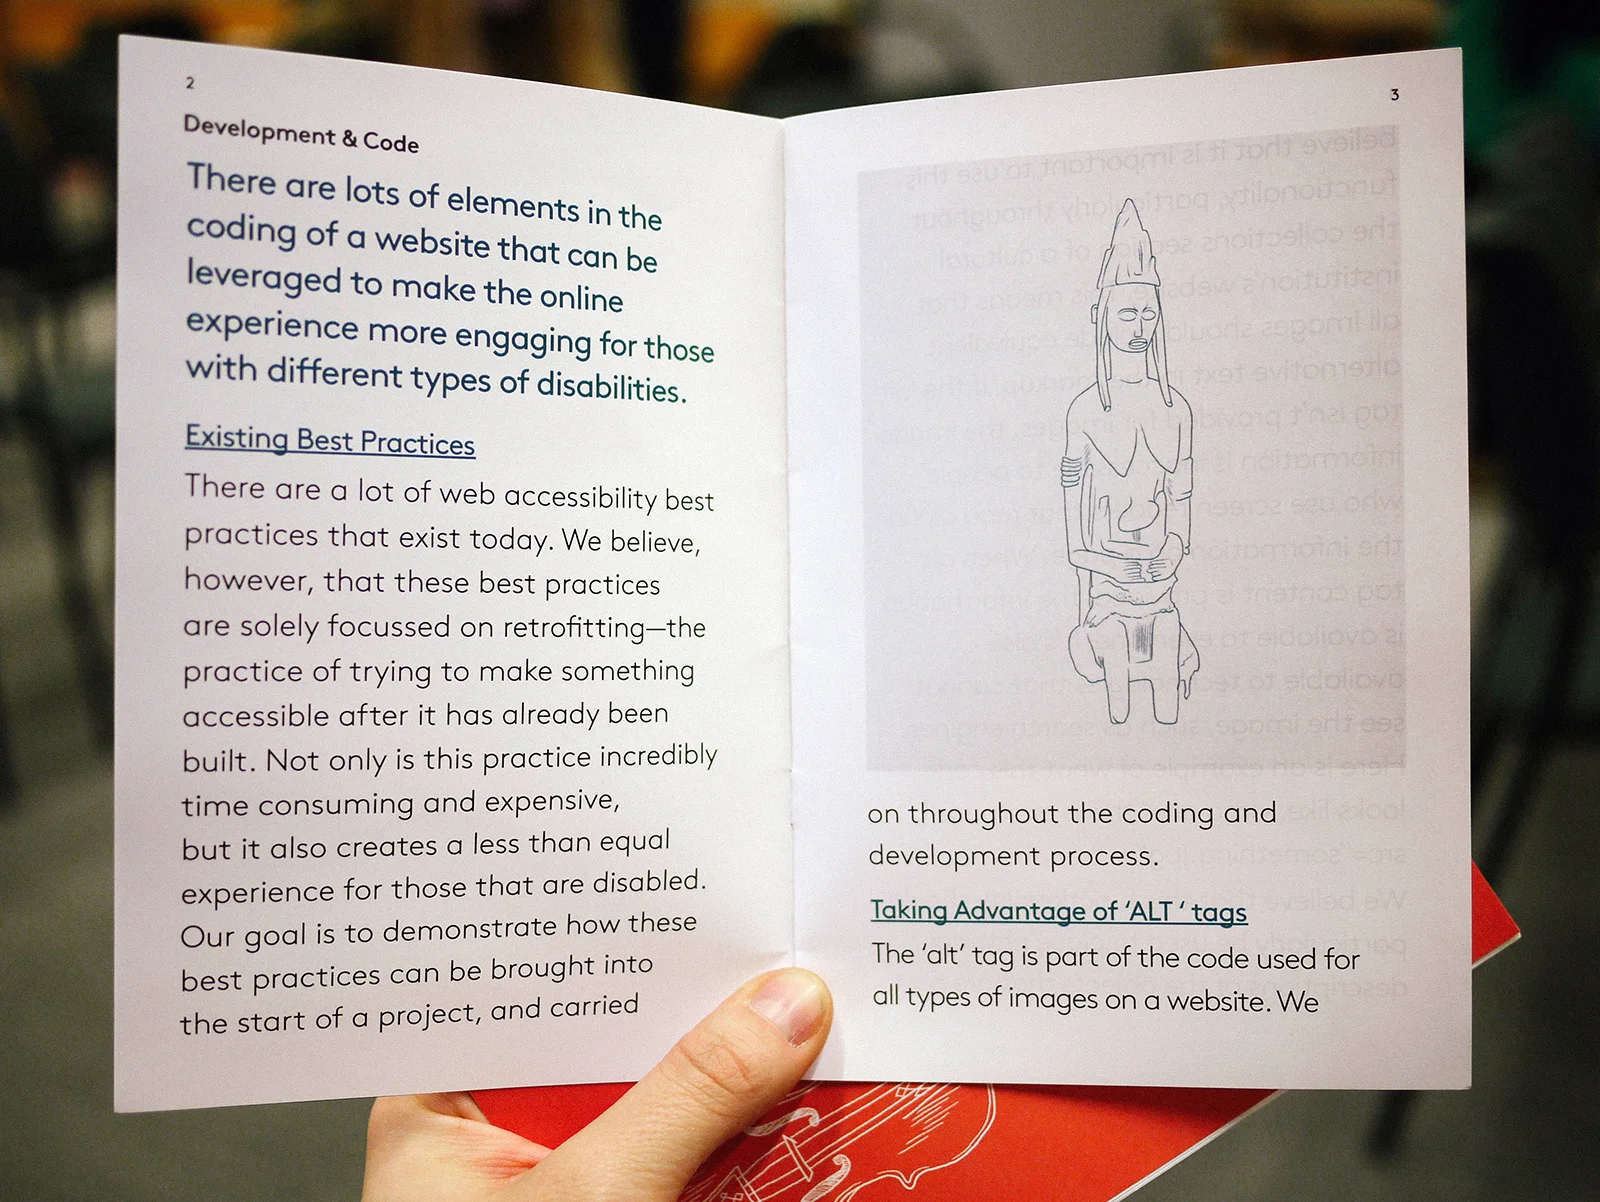 2
Development & Code
There are lots of elements in the
coding of a website that can be
leveraged to make the online
experience more engaging for those
with different types of disabilities.
Existing Best Practices
There are a lot of web accessibility best
practices that exist today. We believe,
however, that these best practices
are solely focussed on retrofitting—the
practice of trying to make something
accessible after it has already been
built. Not only is this practice incredibly
time consuming and expensive,
but it also creates a less than equal
experience for those that are disabled.
Our goal is to demonstrate how these
best practices can be brought into
the start of a project, and carried
3
on throughout the coding and
development process.
Taking Advantage of ‘ALT ‘ tags
The ‘alt’ tag is part of the code used for
all types of images on a website. We